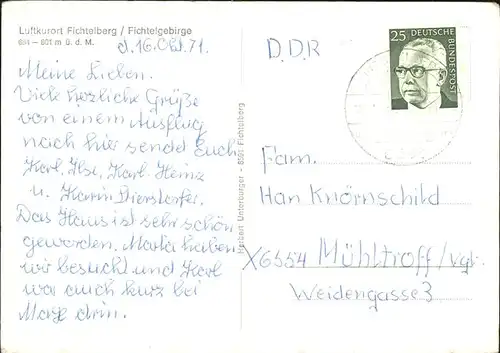 Luftkurort Fichtelberg / Fichtelgebirge
684 – 801 m ü. d. M.
d. 16. Okt. 71.
Meine Lieben.
Viele herzliche Grüße
von einem Ausflug
nach hier sendet Euch
Karl, Ilse, Karl-Heinz
u. Karin Dierstorfer.
Das Haus ist sehr schön
geworden. Marta haben
wir besucht und Karl
war auch kurz bei
Marge drin.
Herbert Unterburger - 8591 Fichtelberg
D.D.R
25
DEUTSCHE
BUNDESPOST
Fam.
Han Knörnschild
X6554 Mühltroff/Vgl.
Weidengasse 3